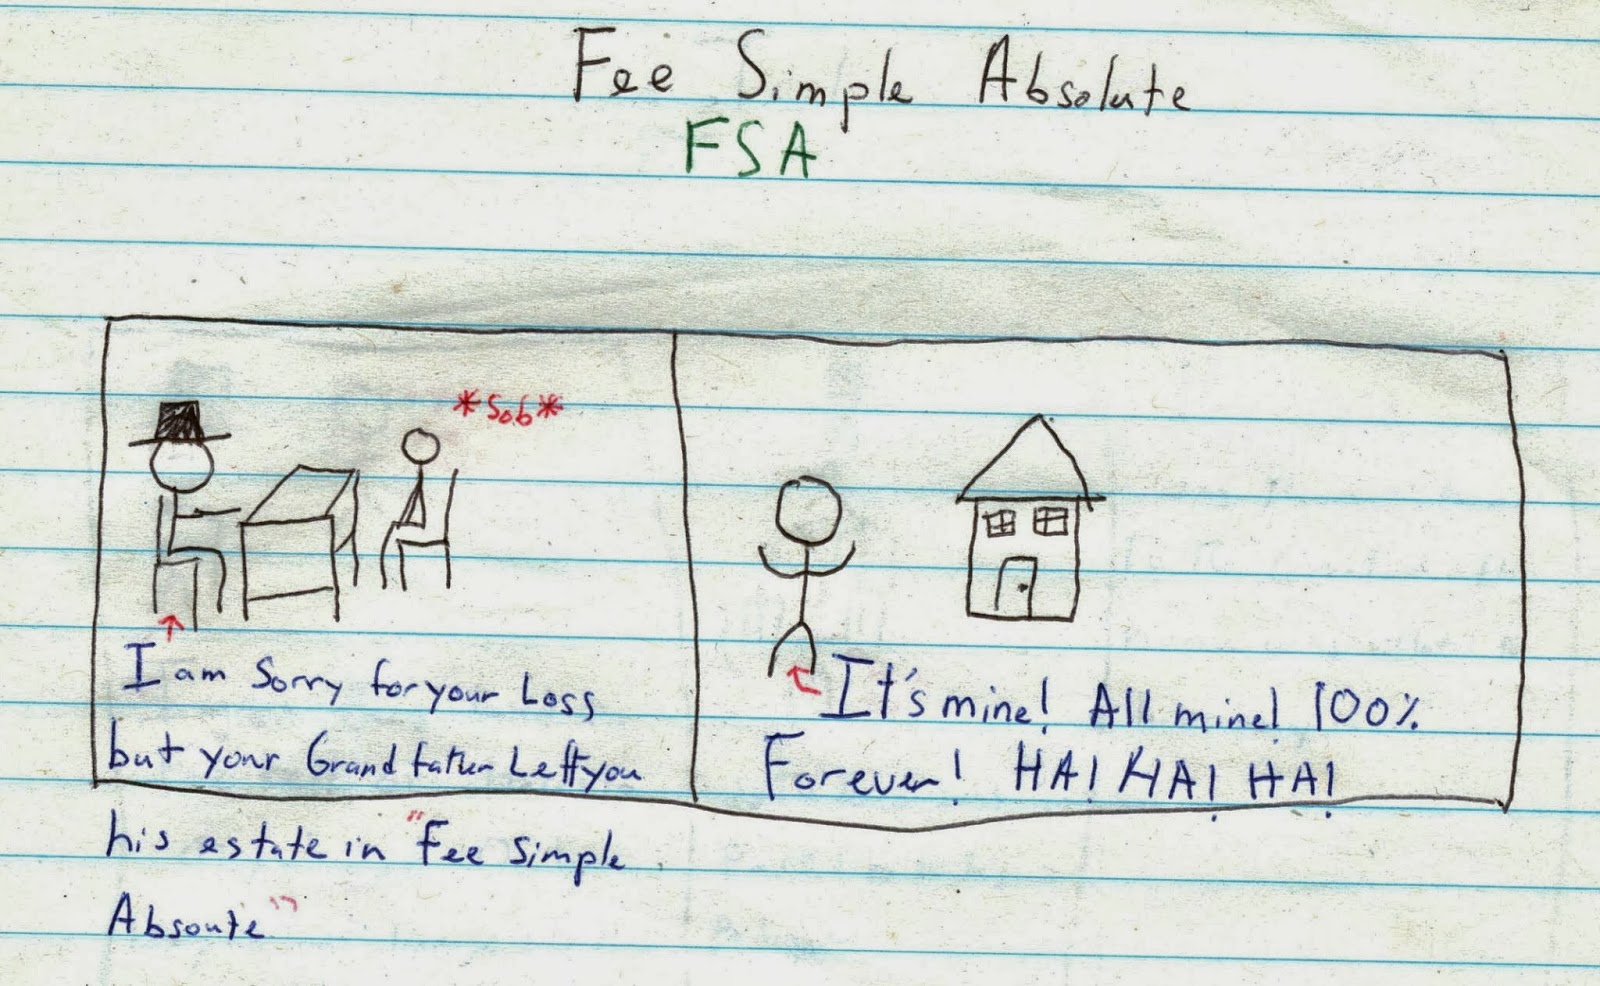 Fee Simple Absolute
FSA
*Sob*
I am Sorry for your Loss
but your Grandfather Left you
his estate in "Fee Simple
Absoute"
It's mine! All mine! 100%
Forever! HA! HA! HA!